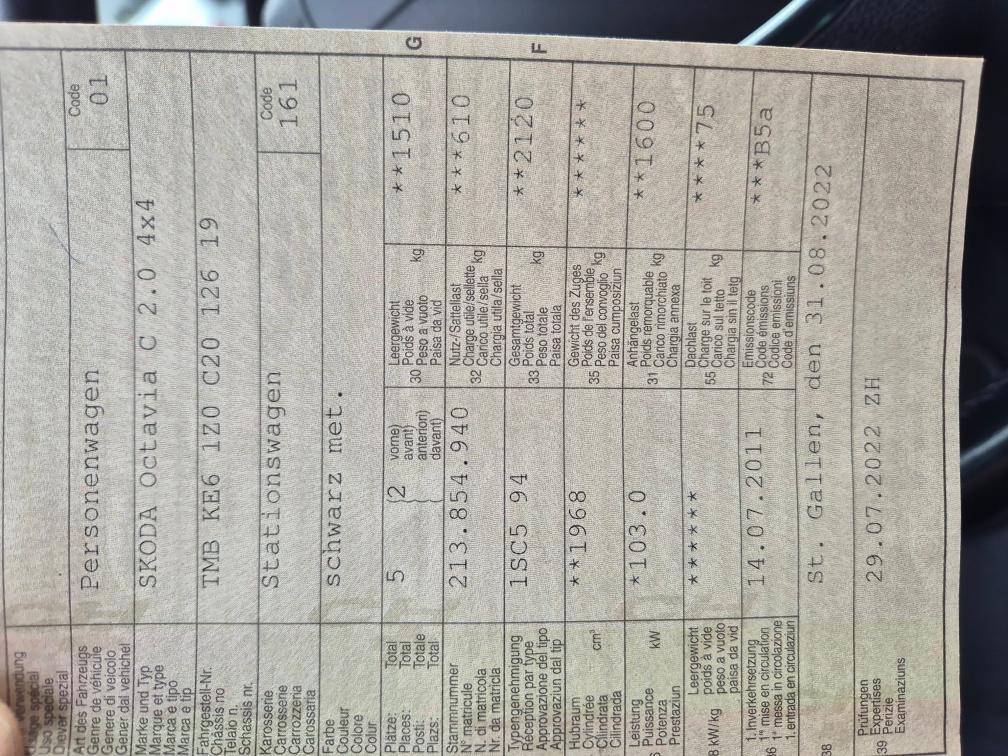 Dever spezial
Art des Fahrzeugs
Genre de véhicule
Genere di veicolo
Gener dal vehichel
Personenwagen
Code
01
Marke und Typ
Marque et type
Marca e tipo
Marca e tip
SKODA Octavia C 2.0 4x4
Fahrgestell-Nr.
Châssis no
Telaio n.
Schassis nr.
TMB KE6 1Z0 C20 126 19
Karosserie
Carrosserie
Carrozzeria
Carossaria
Stationswagen
Code
161
Farbe
Couleur
Colore
Colur
schwarz met.
Plätze: Total
Places: Total
Posti: Totale
Plazs: Total
5
(2
vorne)
avant)
anteriori)
davant)
30
Leergewicht
Poids à vide
Peso a vuoto kg
Paisa da vid
**1510
G
Stammnummer
N° matricule
N. di matricola
Nr. da matricla
213.854.940
32
Nutz-/Sattellast
Charge utile/sellette kg
Carico utile/sella
Chargia utila/sella
***610
Typengenehmigung
Réception par type
Approvazione del tipo
Approvaziun dal tip
1SC5 94
33
Gesamtgewicht
Poids total
Peso totale kg
Paisa totala
**2120
F
Hubraum
Cylindrée
Cilindrata cm³
Cilindrada
**1968
35
Gewicht des Zuges
Poids de l'ensemble kg
Peso del convoglio
Paisa cumposiziun
******
Leistung
Puissance
Potenza kW
Prestaziun
*103.0
31
Anhängelast
Poids remorquable kg
Carico rimorchiato
Chargia annexa
**1600
kW/kg
Leergewicht
poids à vide
peso a vuoto
paisa da vid
******
55
Dachlast
Charge sur le toit
Carico sul tetto kg
Chargia sin il tetg
****75
1. Inverkehrsetzung
1re mise en circulation
1a messa in circolazione
1. entrada en circulaziun
14.07.2011
72
Emissionscode
Code émissions
Codice emissioni
Code d'emissiuns
***B5a
38
St. Gallen, den 31.08.2022
39
Prüfungen
Expertises
Perizie
Examinaziuns
29.07.2022 ZH